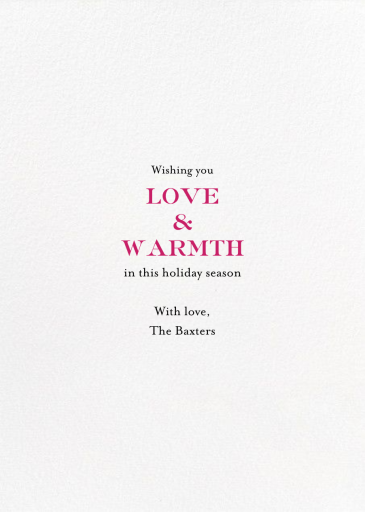 Wishing you
LOVE
&
WARMTH
in this holiday season
With love,
The Baxters